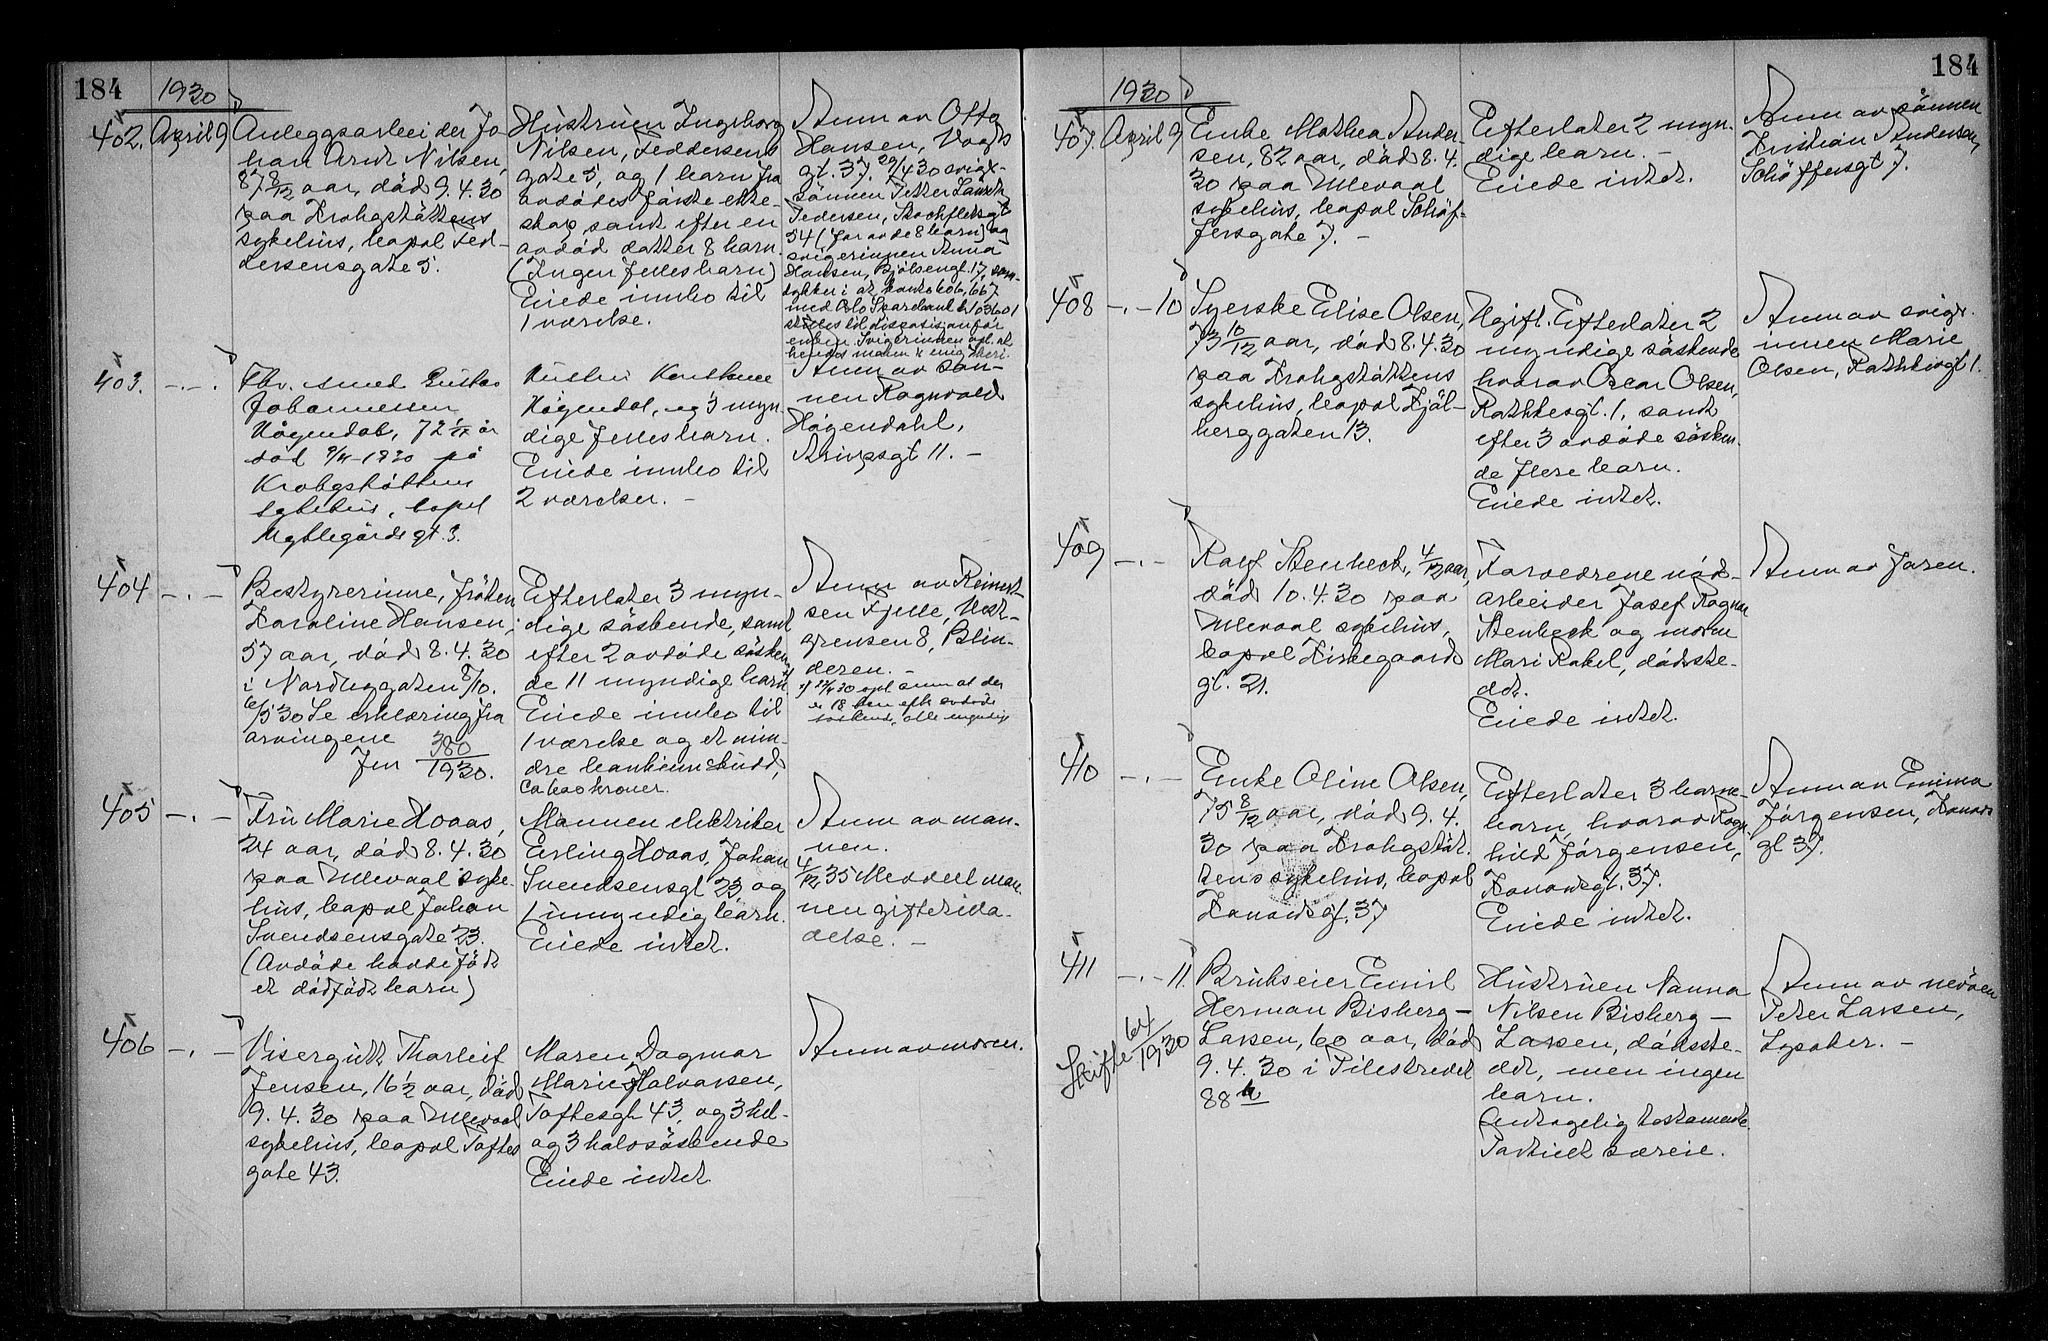 184
1930
402. April 9
Anleggsarbeider Jo-
han Arnt Nilsen,
87 8/12 aar, död 9.4.30
paa Krohgstöttens
sykehus, bopæl Fed-
dersensgate 5.
Hustruen Ingeborg
Nilsen, Feddersens
gate 5, og 1 barn fra
avdödes förste ekte-
skap samt efter en
avdöd datter 8 barn.
(Ingen felles barn)
Eiede innbo til
1 værelse.
Anm av Otto
Hansen, Vogts
gt. 37. 29/4 30 svigt-
sönnen Petter
Pedersen,
54 (far av de 8 barn) og
svigerinnen Anna
Hansen, Bjölsengt. 17, sam-
tykker i at konto 606,667
med Oslo Sparebank
stilles til disposisjon for
enken. Svigerinnen opl. at
hendes mann er enig
403. -.-.
Fhv. smed Gustav
Johannessen
Högendal, 72 år
död 9/4-1930 på
Krohgstöttens
sykehus, bopel
Myhlegårds gt. 3.
Hustru
Högendal, og 3 myn-
dige felles barn.
Eiede innbo til
2 værelser. -
Anm av søn-
nen Ragnvald
Høgendahl,
Strinpsgt 11. -
404 -.-
Bestyrerinne, fröken
Karoline Hansen,
57 aar, död 8.4.30
i Nordbygaten 8/10.
6/5 30 Se erklæring fra
arvingene
Jnr 380/1930.
Efterlater 3 myn-
dige söskende, samt
efter 2 avdöde sösken-
de 11 myndige barn.
Eiede innbo til
1 værelse og et min-
dre bankinnskudd,
ca 600 kroner.
Anm av Reinert-
sen Fjelle, Vest-
grensen 8, Blin-
deren. -
opl anm at der
er 18 barn efter avdöde
söskend, alle myndig
405 -.-
Fru Marie Hoaas,
24 aar, död 8.4.30
paa Ullevaal syke-
hus, bopæl Johan
Svendsensgate 23.
(Avdöde hadde födt
et dödfödt barn)
Mannen elektriker
Erling Hoaas, Johan
Svendsensgt 23, og
1 umyndig barn.
Eiede intet.
Anm av man-
nen.
4/12 35 Meddelt man-
nen giftetilla-
delse. -
406 -.-
Visergutt Thorleif
Jensen, 16 1/2 aar, död
9.4.30 paa Ullevaal
sykehus, bopæl Toftes
gate 43.
Moren Dagmar
Marie Halvorsen,
Toftesgt 43, og 3 hel-
og 3 halvsöskende
Eiede intet.
Anm av moren.
184
1930
407. April 9
Enke Mathea Ander-
sen, 82 aar, död 8.4.
30 paa Ullevaal
sykehus, bopæl Schöf-
fersgate 7. -
Efterlater 2 myn-
dige barn. -
Eiede intet.
Anm av sönnen
Kristian Andersen,
Schöffersgt 7.
408 -.- 10
Syerske Elise Olsen,
73 10/12 aar, död 8.4.30
paa Krohgstöttens
sykehus, bopæl Kjöl-
berggaten 13.
Ugift. Efterlater 2
myndige söskende
hvorav Oscar Olsen,
Rathkesgt. 1, samt
efter 3 avdöde sösken-
de flere barn.
Eiede intet.
Anm av svige-
rinnen Marie
Olsen, Rathkesgt 1.
409 -.-
Rolf Stenbeck, 4/12 aar,
död 10.4.30 paa
Ullevaal sykehus,
bopæl Kirkegaards
gt. 21.
Forældrene nöds-
arbeider Josef Ragnar
Stenbeck og moren
Mari Rakel, dödste-
det.
Eiede intet.
Anm av faren.
410 -.-
Enke Oline Olsen,
75 8/12 aar, död 9.4.
30 paa Krohgstöt-
tens sykehus, bopæl
Kanonsgt. 37
Efterlater 3 barne-
barn, hvorav Ragn-
hild Jörgensen,
Kanonsgt. 37.
Eiede intet.
Anm av Emma
Jörgensen, Kanons
gt 37.
411 -.- 11.
Skifte 64/1930
Brukseier Emil
Herman Bisberg-
Larsen, 60 aar, död
9.4.30 i Pilestredet
88 b
Hustruen Nanna
Nilsen Bisberg-
Larsen, dödsste-
det, men ingen
barn.
Antagelig testamente.
Partielt særeie.
Anm av nevöen
Peter Larsen,
Lysaker. -